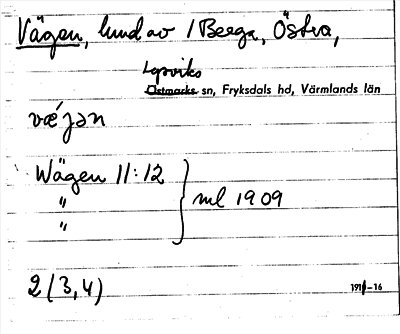 Vägen, lund av / Berga, Östra,
Lysviks
Östmarks sn, Fryksdals hd, Värmlands län
væ´jən
Wägen 11:12
" } ml 1909
"
2 (3,4)
1911–16